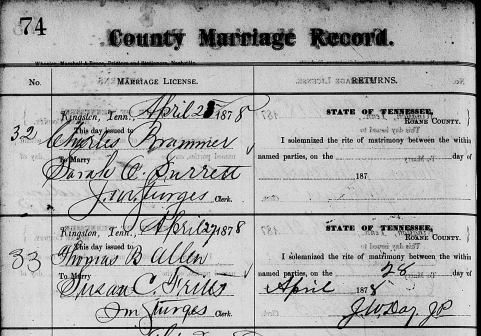 74
County Marriage Record.
No. MARRIAGE LICENSE. RETURNS.
32
Kingston, Tenn., April 25 1878
This day issued to
Charles Brammer
To Marry
Sarah C.
J. M. Sturges Clerk.
STATE OF TENNESSEE,
ROANE COUNTY.
I solemnized the rite of matrimony between the within
named parties, on the day of
187
33
Kingston, Tenn., April 27 1878
This day issued to
Thomas B Allen
To Marry
Susan C.
J m Sturges Clerk.
STATE OF TENNESSEE,
ROANE COUNTY.
I solemnized the rite of matrimony between the within
named parties, on the 28 day of
April 1878
J W Day, J P